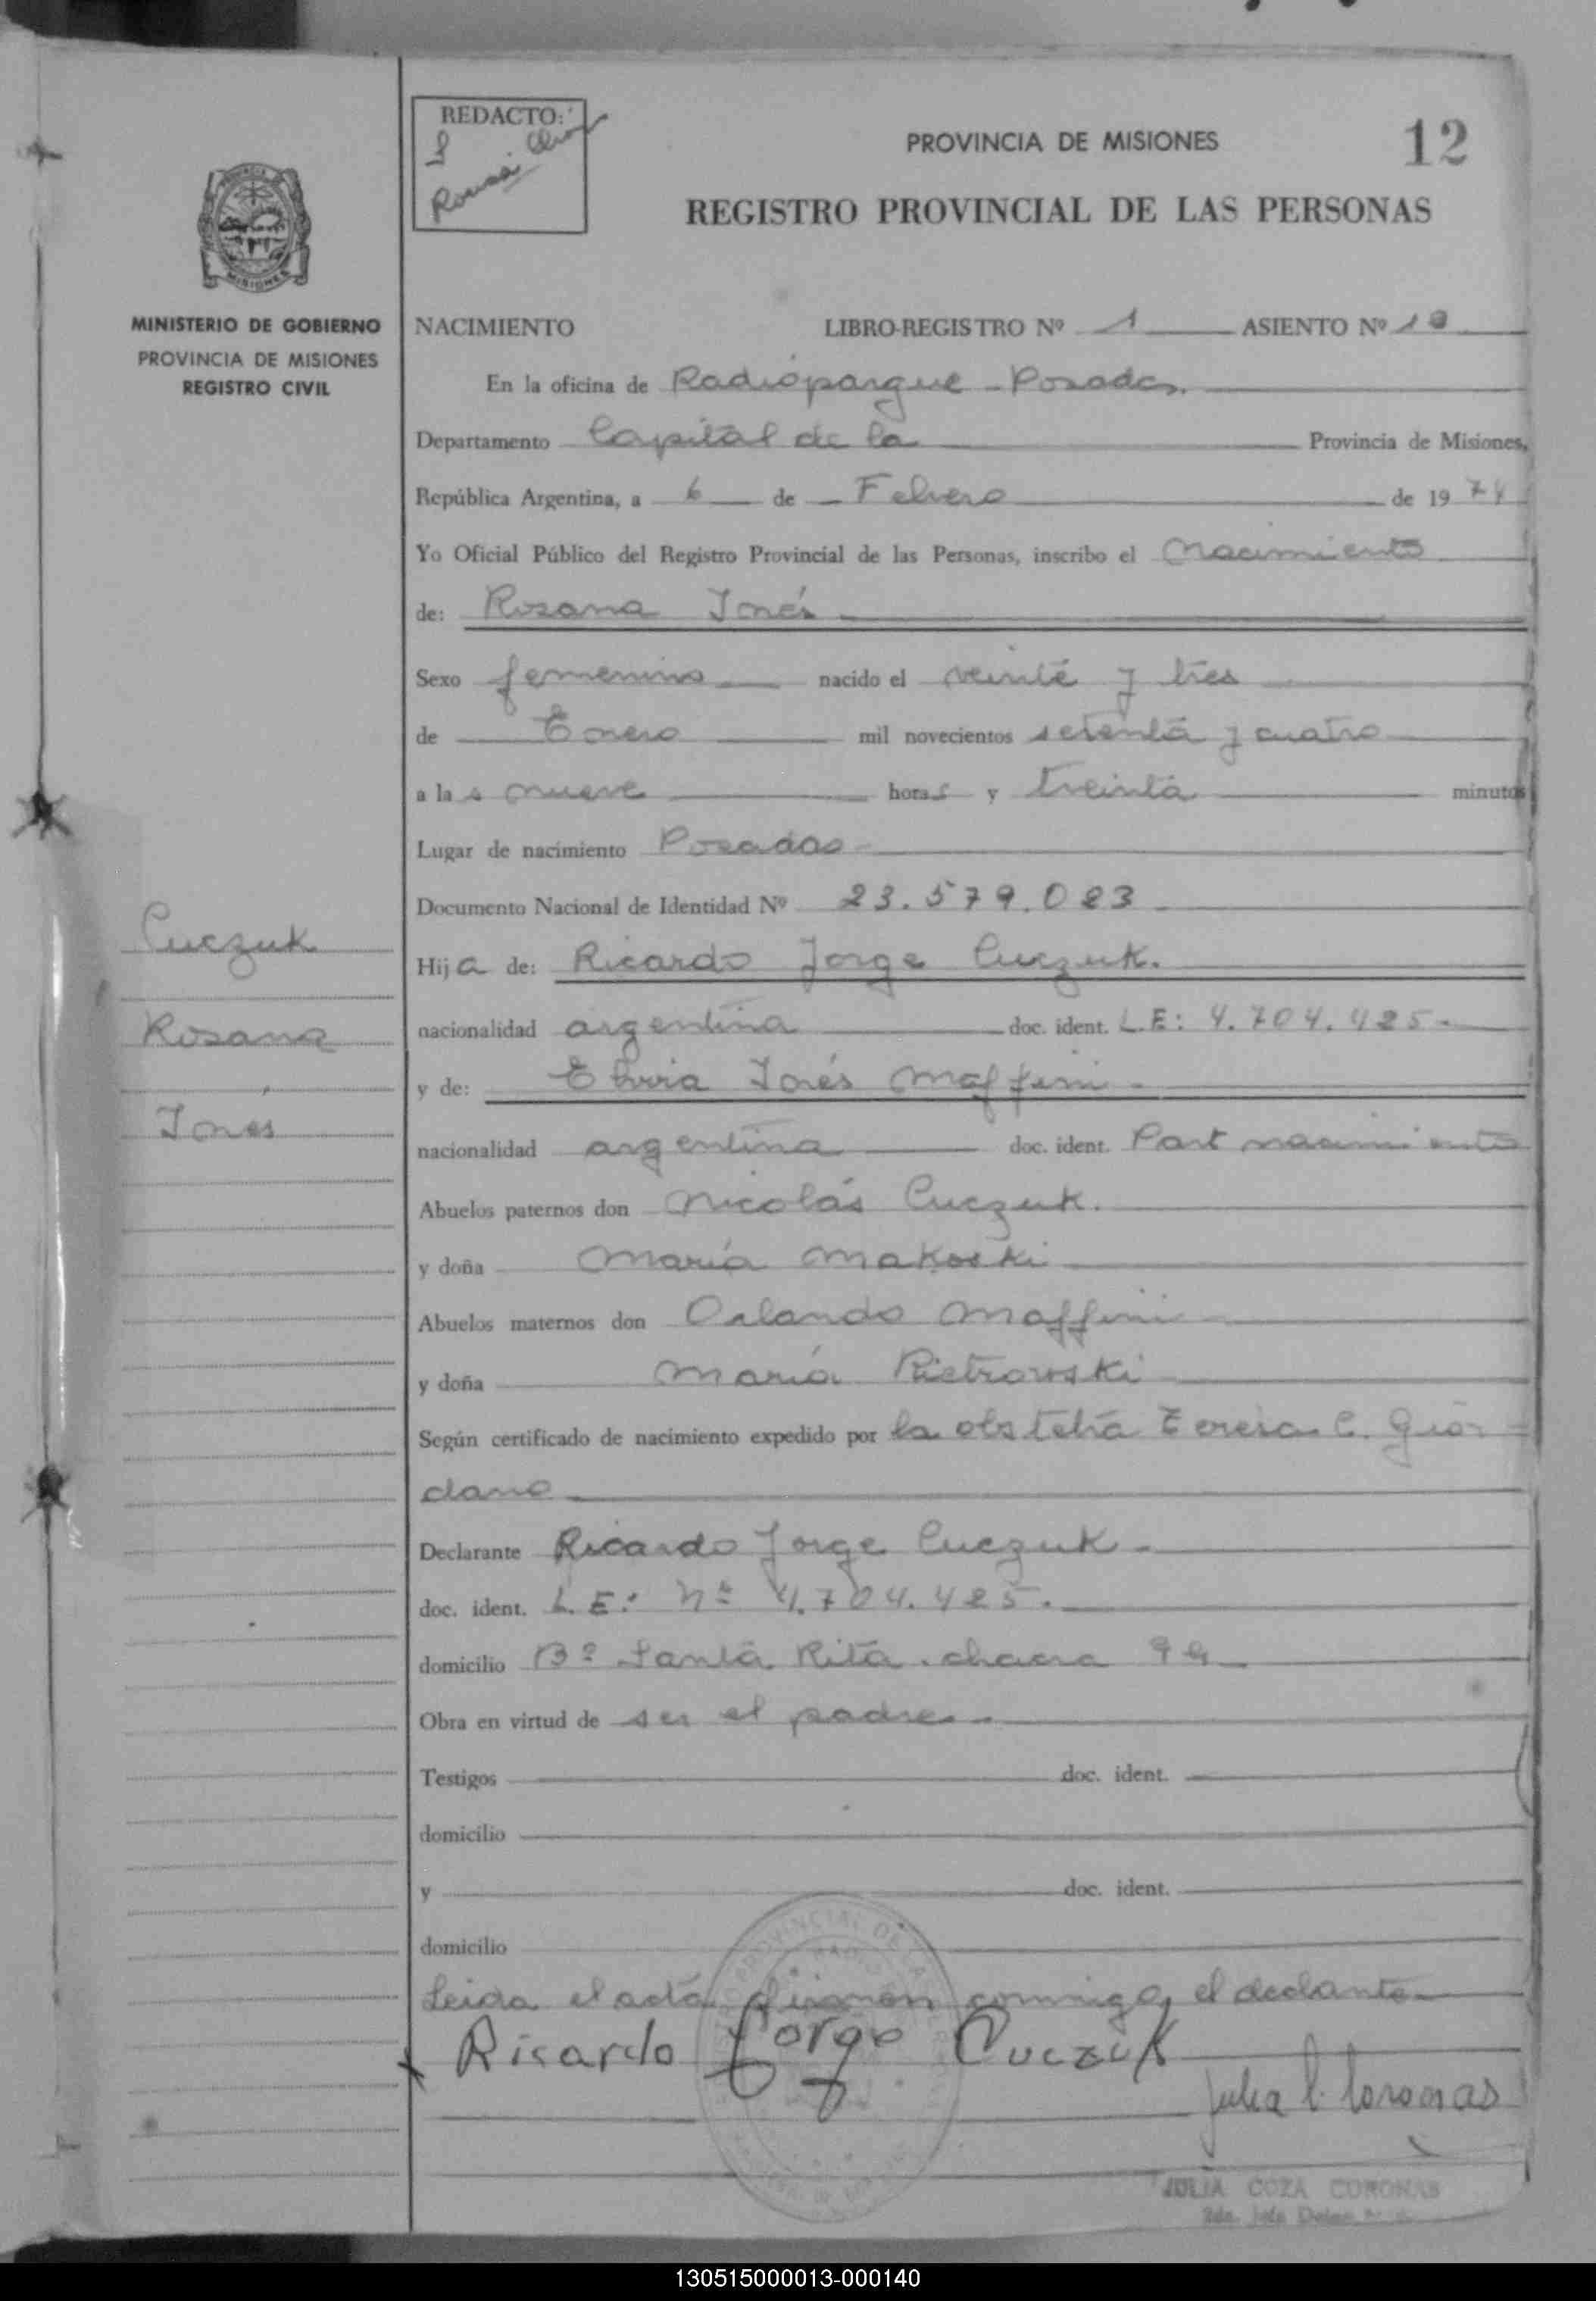 REDACTO:
12
PROVINCIA DE MISIONES
REGISTRO PROVINCIAL DE LAS PERSONAS
MINISTERIO DE GOBIERNO
PROVINCIA DE MISIONES
REGISTRO CIVIL
NACIMIENTO LIBRO-REGISTRO Nº 1 ASIENTO Nº
En la oficina de Radioparque - Posadas.
Departamento Capital de la Provincia de Misiones,
República Argentina, a 6 de Febrero de 1974
Yo Oficial Público del Registro Provincial de las Personas, inscribo el Nacimiento
de: Rosana Inés
Sexo femenino nacido el veinte y tres
de Enero mil novecientos setenta y cuatro
a las nueve horas y treinta minutos
Lugar de nacimiento Posadas
Documento Nacional de Identidad Nº 23.579.023
Hija de: Ricardo Jorge Cuczuk.
nacionalidad argentina doc. ident. L.E: 4.704.425-
y de: Elvira Inés Maffini -
nacionalidad argentina doc. ident. Part nacimiento
Abuelos paternos don Nicolás Cuczuk.
y doña María Makoski
Abuelos maternos don Orlando Maffini
y doña María Pietrowski
Según certificado de nacimiento expedido por la obstetra Teresa C. Gior
dano
Declarante Ricardo Jorge Cuczuk -
doc. ident. L.E: Nº 4.704.425.
domicilio Bº Santa Rita - chacra
Obra en virtud de ser el padre -
Testigos doc. ident.
domicilio
y doc. ident.
domicilio
Leida el acta firman conmigo, el declante
Ricardo Jorge Cuczuk
Julia C. Coronas
JULIA COZA CORONAS
Cuczuk
Rosana
Inés
130515000013-000140